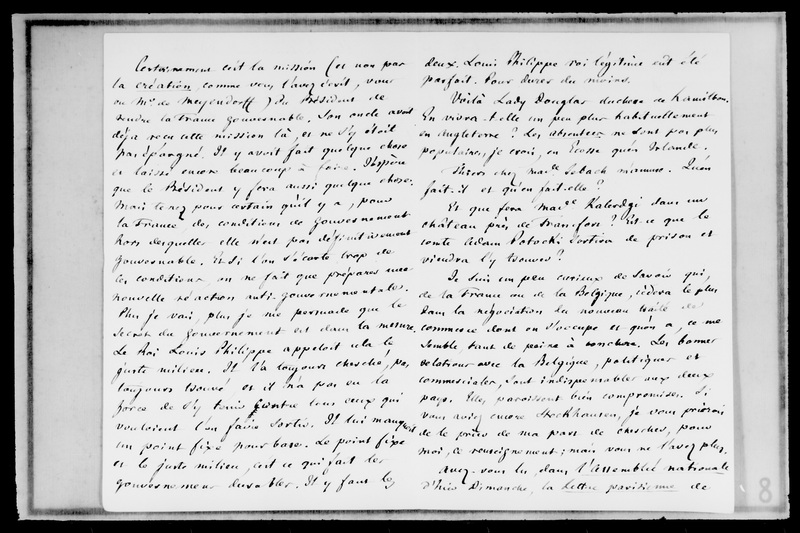 Certainement c'est la mission (et non pas
la création, comme vous l'avez écrit, vous
ou Mr. de Meyendorff) du Président de
rendre la France gouvernable. Son oncle avait
déjà reçu cette mission là, et ne s'y était
pas épargné. Il y avoit fait quelque chose
et laissé encore beaucoup à faire. J'espère
que le Président y fera aussi quelque chose.
Mais tenez pour certain qu'il y a, pour
la France, des conditions de gouvernement
hors desquelles elle n'est pas définitivement
gouvernable. Et si l'on s'écarte trop de
ces conditions, on ne fait que préparer une
nouvelle réaction anti-gouvernementale.
Plus je vais, plus je me persuade que le
secret du gouvernement est dans la mesure.
Le Roi Louis Philippe appeloit cela le
juste milieu. Il l'a toujours cherché, pas
toujours trouvé et il n'a pas eu la
force de s'y tenir contre tous ceux qui
vouloient l'en faire sortir. Il lui manquoit
un point fixe pour base. Le point fixe
et le juste milieu, c'est ce qui fait les
gouvernemens durables. Il y faut les
deux. Louis Philippe roi légitime eût été
parfait. Pour durer du moins.
Voilà Lady Douglas duchesse de Hamilton.
En vivra-t-elle un peu plus habituellement
en Angleterre ? Les absentees ne sont pas plus
populaires, je crois, en Ecosse qu'en Irlande.
Thiers chez Made Seback m'amuse. Qu'en
fait-il et qu'en fait-elle ?
Et que fera Made Kalerdgi dans un
château près de Francfort ? Est-ce que le
comte Adam Potocki sortira de prison et
viendra l'y trouver ?
Je suis un peu curieux de savoir qui,
de la France ou de la Belgique, cédera le plus
dans la négociation du nouveau traité de
commerce dont on s'occupe et qu'on a, ce me
semble tant de peine à conclure. Les bonnes
relations avec la Belgique, politiques et
commerciales, sont indispensables aux deux
pays. Elles paroissent bien compromises. Si
vous aviez encore Stockhausen, je vous prierois
de le prier de ma part de chercher, pour
moi, ce renseignement ; mais vous ne l'avez plus.
Avez-vous lu, dans l'Assemblée nationale
d'hier Dimanche, la Lettre parisienne de
8